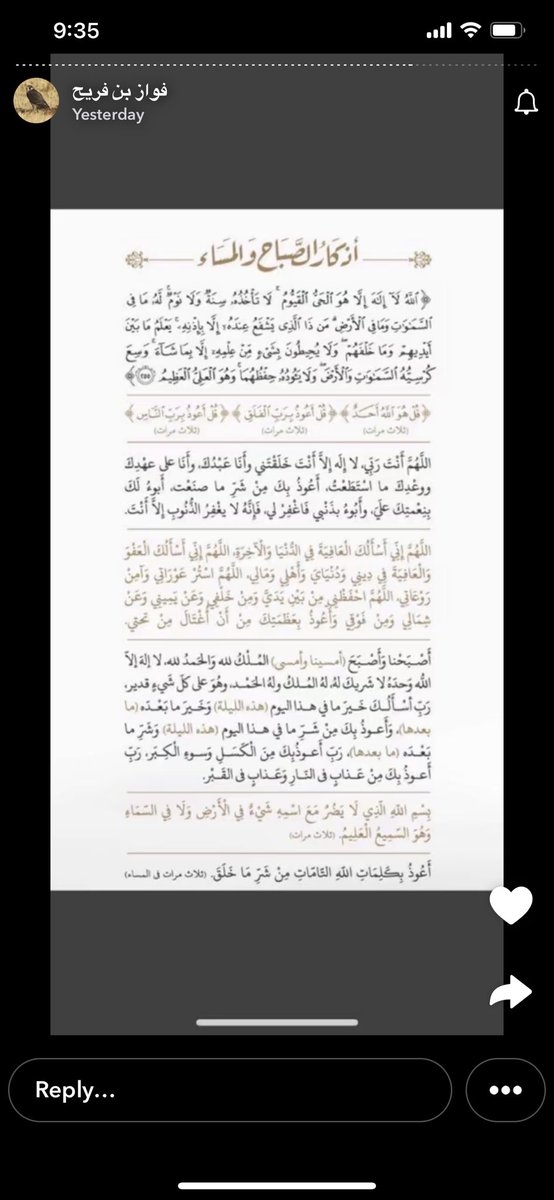 9:35
فواز بن فريح
Yesterday
أذكار الصَّبَاح وَالمَسَاء
﴿ٱللَّهُ لَآ إِلَٰهَ إِلَّا هُوَ ٱلۡحَيُّ ٱلۡقَيُّومُۚ لَا تَأۡخُذُهُۥ سِنَةٞ وَلَا نَوۡمٞۚ لَّهُۥ مَا فِي
ٱلسَّمَٰوَٰتِ وَمَا فِي ٱلۡأَرۡضِۗ مَن ذَا ٱلَّذِي يَشۡفَعُ عِندَهُۥٓ إِلَّا بِإِذۡنِهِۦۚ يَعۡلَمُ مَا بَيۡنَ
أَيۡدِيهِمۡ وَمَا خَلۡفَهُمۡۖ وَلَا يُحِيطُونَ بِشَيۡءٖ مِّنۡ عِلۡمِهِۦٓ إِلَّا بِمَا شَآءَۚ وَسِعَ
كُرۡسِيُّهُ ٱلسَّمَٰوَٰتِ وَٱلۡأَرۡضَۖ وَلَا يَـُٔودُهُۥ حِفۡظُهُمَاۚ وَهُوَ ٱلۡعَلِيُّ ٱلۡعَظِيمُ ٢٥٥﴾
﴿قُلۡ هُوَ ٱللَّهُ أَحَدٌ﴾ ﴿قُلۡ أَعُوذُ بِرَبِّ ٱلۡفَلَقِ﴾ ﴿قُلۡ أَعُوذُ بِرَبِّ ٱلنَّاسِ﴾
(ثلاث مرات) (ثلاث مرات) (ثلاث مرات)
اللَّهُمَّ أَنْتَ رَبِّي، لا إِله إِلاَّ أَنْتَ خَلَقْتَني وأَنا عَبْدُكَ، وأَنا على عهْدِكَ
ووعْدِكَ ما اسْتَطَعْتُ، أَعُوذُ بِكَ مِنْ شَرِّ ما صنَعْتُ، أَبوءُ لَكَ
بِنِعْمتِكَ علَيَّ، وأَبُوءُ بذَنْبي فَاغْفِرْ لي، فَإِنَّهُ لا يغْفِرُ الذُّنُوبَ إِلاَّ أَنْتَ.
اللَّهُمَّ إِنِّي أَسْأَلُكَ الْعَافِيَةَ فِي الدُّنْيَا وَالْآخِرَةِ، اللَّهُمَّ إِنِّي أَسْأَلُكَ الْعَفْوَ
وَالْعَافِيَةَ فِي دِينِي وَدُنْيَايَ وَأَهْلِي وَمَالِي، اللَّهُمَّ اسْتُرْ عَوْرَاتِي وَآمِنْ
رَوْعَاتِي، اللَّهُمَّ احْفَظْنِي مِنْ بَيْنِ يَدَيَّ وَمِنْ خَلْفِي وَعَنْ يَمِينِي وَعَنْ
شِمَالِي وَمِنْ فَوْقِي وَأَعُوذُ بِعَظَمَتِكَ مِنْ أَنْ أُغْتَالَ مِنْ تَحْتِي.
أَصْـبَحْنا وَأَصْـبَحَ (أمسينا وأمسى) المُـلْكُ لله وَالحَمدُ لله، لا إلهَ إلاّ
اللّهُ وَحدَهُ لا شَريكَ لهُ، لهُ المُـلكُ ولهُ الحَمْـد، وهُوَ على كلّ شَيءٍ قدير،
رَبِّ أسْـأَلُـكَ خَـيرَ ما في هـذا اليوم (هذه الليلة) وَخَـيرَ ما بَعْـدَه (ما
بعدها)، وَأَعـوذُ بِكَ مِنْ شَـرِّ ما في هـذا اليوم (هذه الليلة) وَشَرِّ ما
بَعْـدَه (ما بعدها)، رَبِّ أَعـوذُبِكَ مِنَ الْكَسَـلِ وَسـوءِ الْكِبَـر، رَبِّ
أَعـوذُ بِكَ مِنْ عَـذابٍ في النّـارِ وَعَـذابٍ في القَـبْر.
بِسْمِ اللَّهِ الَّذِي لَا يَضُرُّ مَعَ اسْمِهِ شَيْءٌ فِي الْأَرْضِ وَلَا فِي السَّمَاءِ
وَهُوَ السَّمِيعُ الْعَلِيمُ. (ثلاث مرات)
أَعُوذُ بِكَلِمَاتِ اللَّهِ التَّامَّاتِ مِنْ شَرِّ مَا خَلَقَ. (ثلاث مرات في المساء)
Reply...